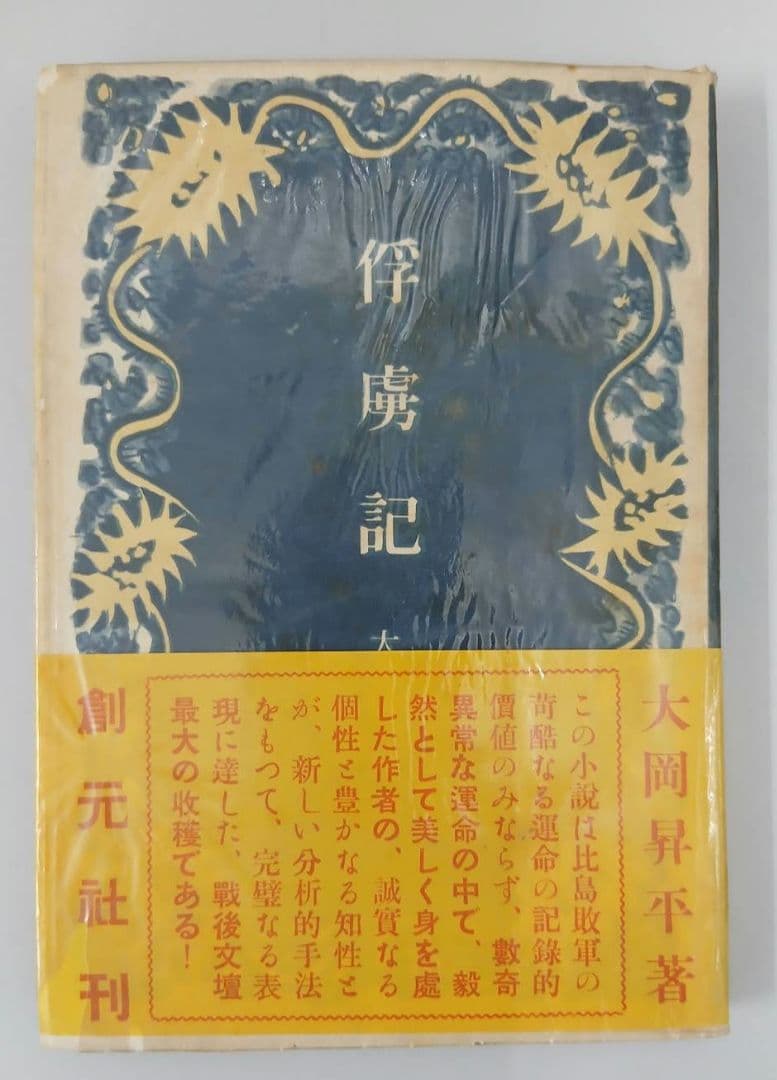 俘虜記
大
大岡昇平著
この小説は比島敗軍の
苛酷なる運命の記錄的
價値のみならず、數奇
異常な運命の中で、毅
然として美しく身を處
した作者の、誠實なる
個性と豊かなる知性と
が、新しい分析的手法
をもつて、完璧なる表
現に達した、戰後文壇
最大の收穫である！
創元社刊